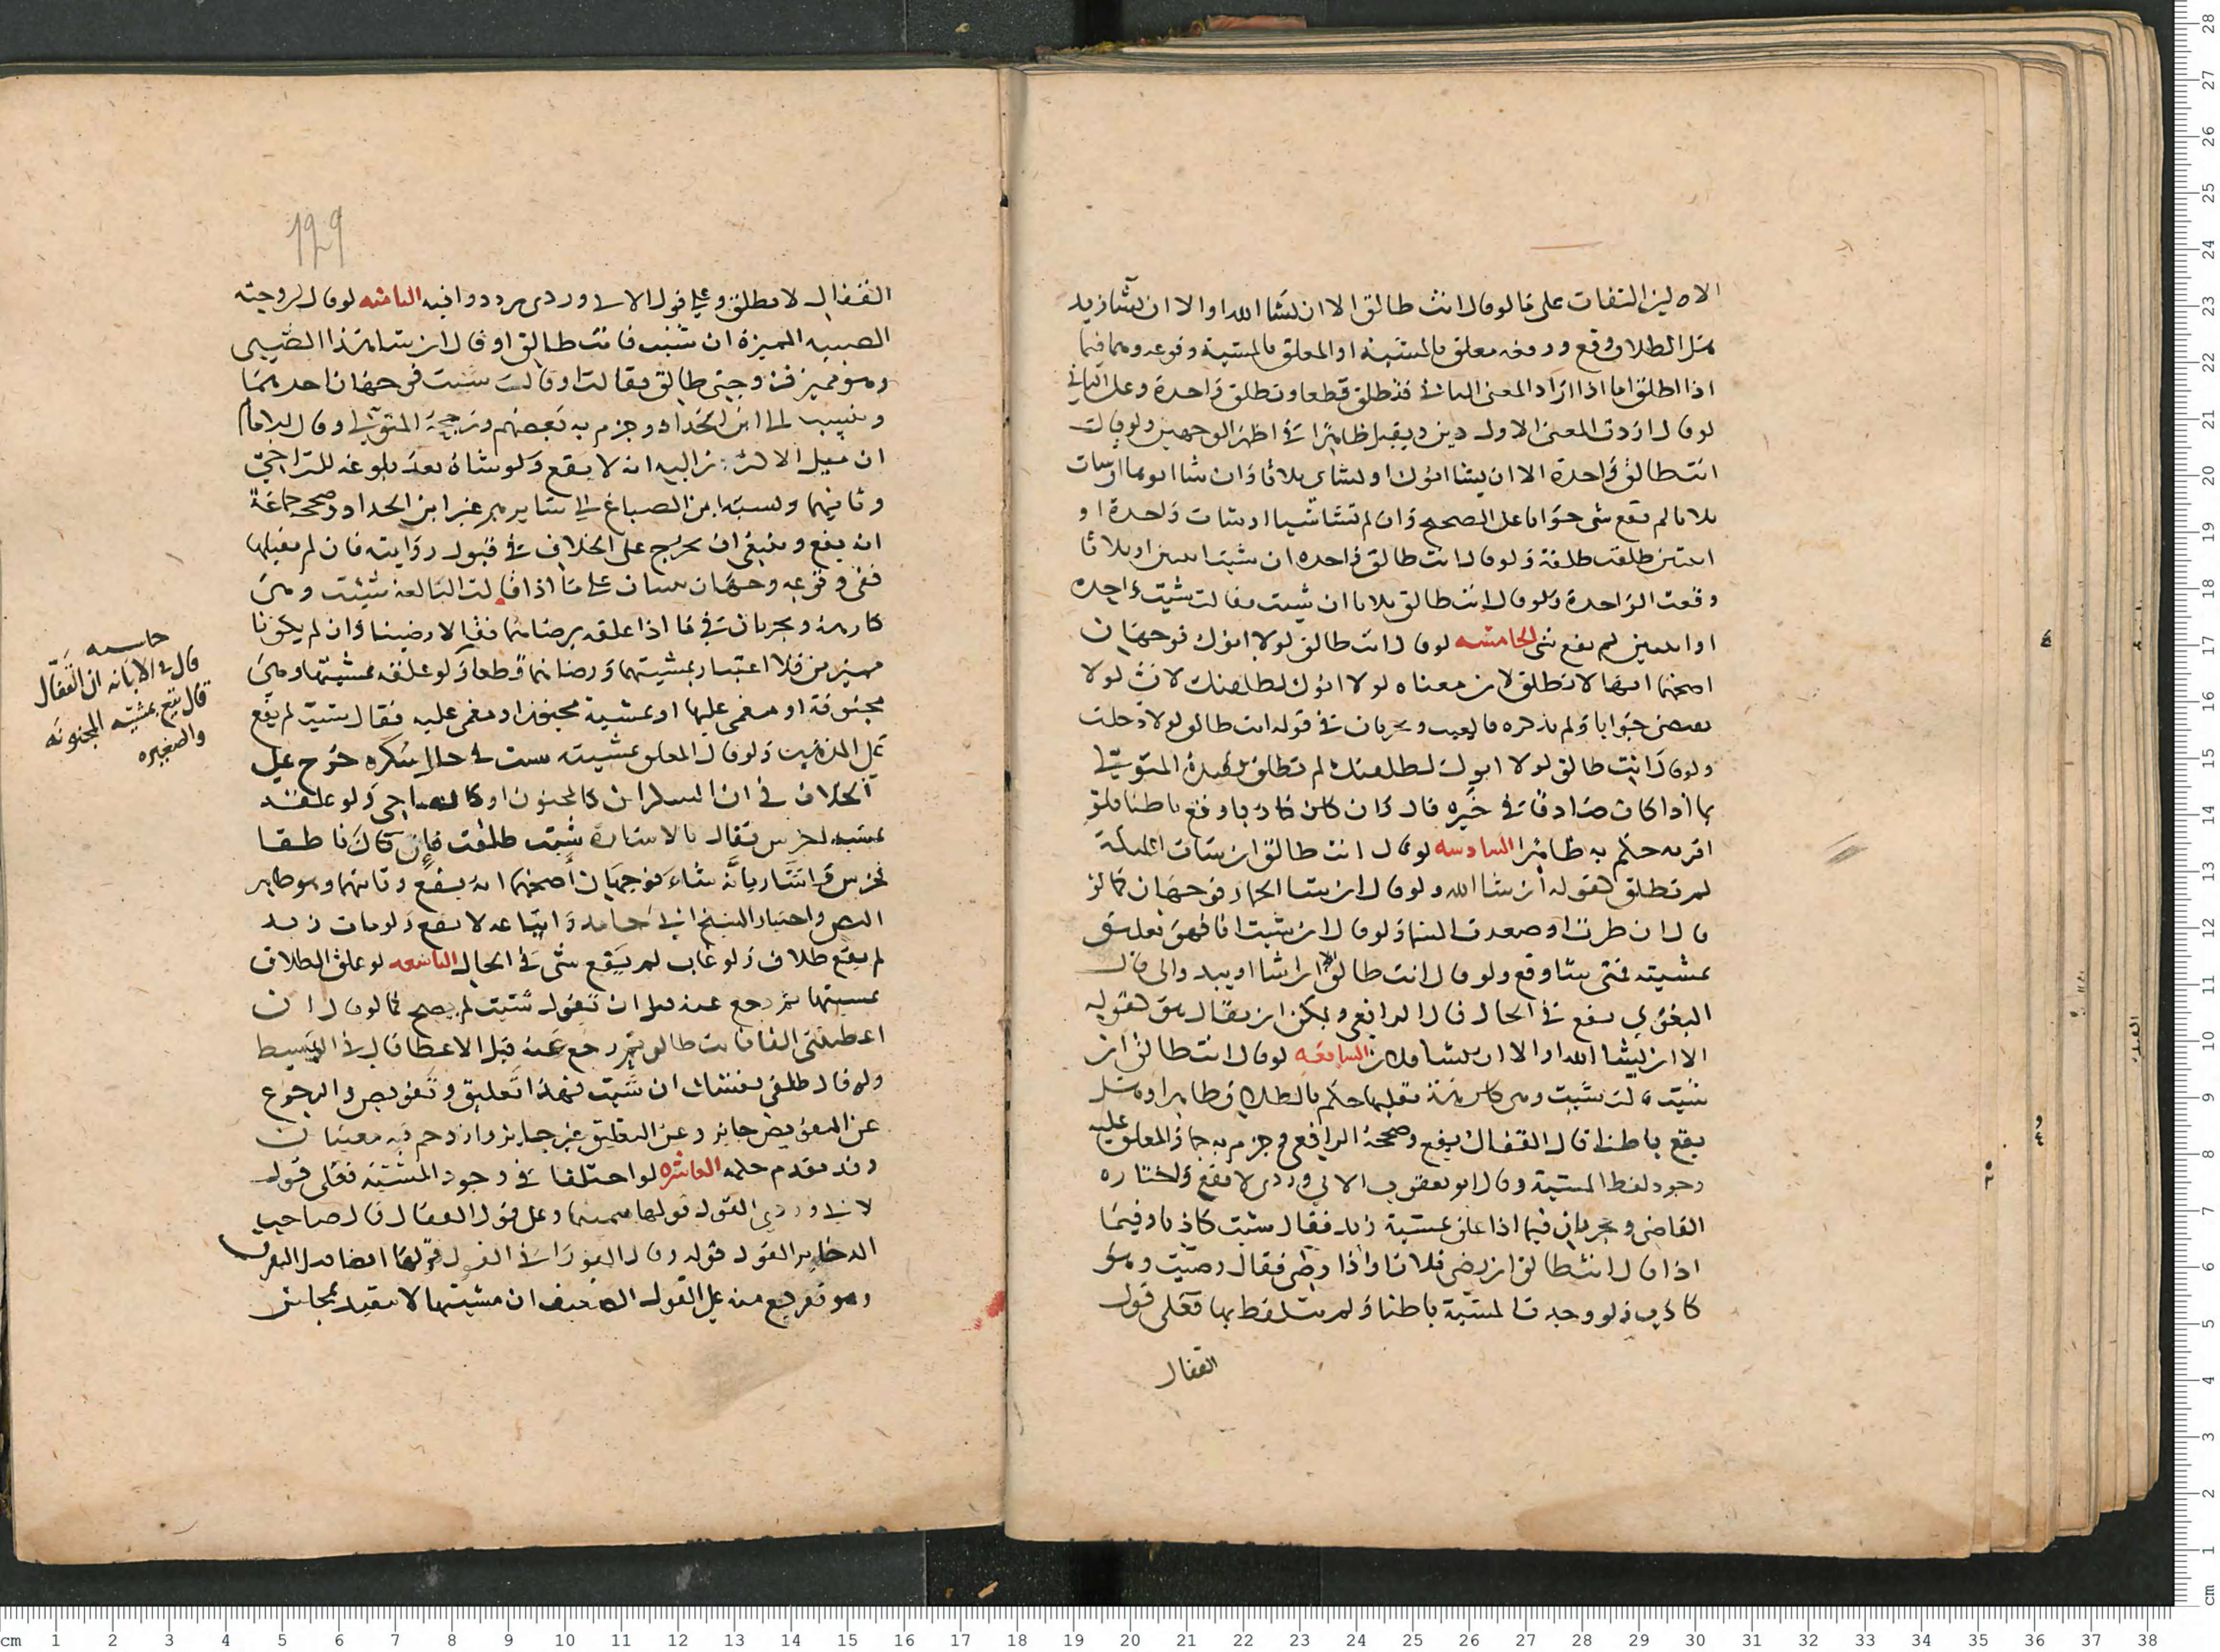 لوقال انت طالق الا ان يشا الله او الا ان يشا زيد
هل الطلاق وقع ورفعه معلق بالمشية او المعلق بالمشية وقوعه وهما فيما
اذا اطلق اما اذا اراد المعنى الثانى فتطلق قطعا وتطلق واحدة وعلى الثانى
لوقال اردت المعنى الاول دين ويقبل ظاهرا فى اظهر الوجهين ولوقالت
انت طالق واحدة الا ان يشا ابوك او تشائى ثلاثا فان شا ابوها او شات
ثلاثا لم يقع شى جوابا على الصحيح وان لم تشا شيا او شات واحدة او
اثنتين طلقت طلقة ولو قال انت طالق واحده ان شئت اثنتين او ثلاثا
وقعت الواحدة ولو قال انت طالق ثلاثا ان شيت فقالت شيت واحده
او اثنتين لم يقع شى الخامسه لوقال انت طالق لولا ابوك فوجهان
اصحهما انها لا تطلق لان معناه لولا ابوك لطلقتك لان لولا
تقتضى جوابا ولم يذكره فالغيت ويجريان فى قوله انت طالق لولا دخلت
ولو قال انت طالق لولا ابوك لطلقتك لم تطلق المتولى
بما اذا كان صادقا فى خبره قال وان كان كاذبا وقع باطنا فلو
اقر به حكم به ظاهرا السادسه لوقال انت طالق ان شات الملائكة
لم تطلق لقوله ان شا الله ولو قال ان شا الحمار فوجهان كما لو
قال ان طرت او صعدت السما ولو قال ان شيت انا فهو تعليق
بمشيته فمتى شا وقع ولو قال انت طالق الا ان اشا او يبدو لى قال
البغوى يقع فى الحال قال الرافعى ويمكن ان يقال هو كقوله
الا ان يشا الله او الا ان يشا فلان السابعه لوقال انت طالق ان
شئت فقالت شيت وهى كارهة بقلبها حكم بالطلاق ظاهرا وهل
يقع باطنا قال القفال يقع وصححه الرافعى وجزم به جماعة والمعلق عليه
وجود لفظ المشية وقال ابو يعقوب الابيوردى لا يقع واختاره
القاضى ويجريان فيما اذا علق بمشية زيد فقال شيت كاذبا وفيما
اذا قال انت طالق ان رضى فلان او اذا رضى فقال رضيت وهو
كاذب ولو وجدت المشية باطنا ولم يتلفظ بها فعلى قول
القفال
129
القفال لا تطلق وعلى قول الابيوردى مردد وافيه الثامنه لوقال لزوجته
الصبيه المميزة ان شئت فانت طالق او قال ان شا هذا الصبى
وهو مميز فزوجتى طالق فقالت او قال شيت فوجهان احدهما
وينسب الى ابن الحداد وجزم به بعضهم ورجحه المتولى وقال الامام
ان ميل الاكثرين اليه انه لا يقع ولو شاه بعد بلوغه للتراخى
وثانيهما ونسبه ابن الصباغ الى سايرهم غير ابن الحداد وصححه جماعة
انه يقع وينبغى ان يخرج على الخلاف فى قبول روايته فان لم نقبلها
ففى وقوعه وجهان على ما اذا قالت البالغة شيئت وهى
كارهة ويجريان فى ما اذا علقه برضاهما فقالا رضينا وان لم يكونا
مميزين فلا اعتبار بمشيتهما ورضاهما قطعا ولو علقه بمشيتها وهى
مجنونة او مغمى عليها او بمشية مجنون او مغمى عليه فقال شيت لم يقع
على المذهبين ولو قال المعلق بمشيته شيت فى حال سكره خرج على
الخلاف فى ان السكران كالمجنون او كالصاحى ولو علقه
بمشيه اخرس فقال بالاشارة شيت طلقت فان كان ناطقا
فخرس واشار بانه شاء فوجهان اصحهما انه يقع وثانيهما وهو ظاهر
النص واختيار الشيخ ابى حامد واتباعه لا يقع ولو مات زيد
لم يقع طلاق ولو غاب لم يقع شى فى الحال التاسعه لو علق الطلاق
بمشيتها ثم رجع عنه قبل ان تقول شيت لم يصح كما لو قال ان
اعطيتنى الفا فانت طالق ثم رجع عنه قبل الاعطا قال فى البسيط
ولو قال طلقى نفسك ان شيت فهذا تعليق وتفويض والرجوع
عن التفويض جائز وعن التعليق غير جائز وازدحم فيه معنيان
وقد تقدم حكمه العاشره لو اختلفا فى وجود المشية فعلى قول
الابيوردى القول قولها وعلى قول القفال قال صاحب
الذخاير القول قوله وقال الفورانى القول قولها ايضا
وهو تفريع منه على القول الضعيف ان مشيتها لا تتقيد بمجلس
حاشيه
قال فى الابانه ان القفال
قال يقع بمشية المجنونه
والصغيره